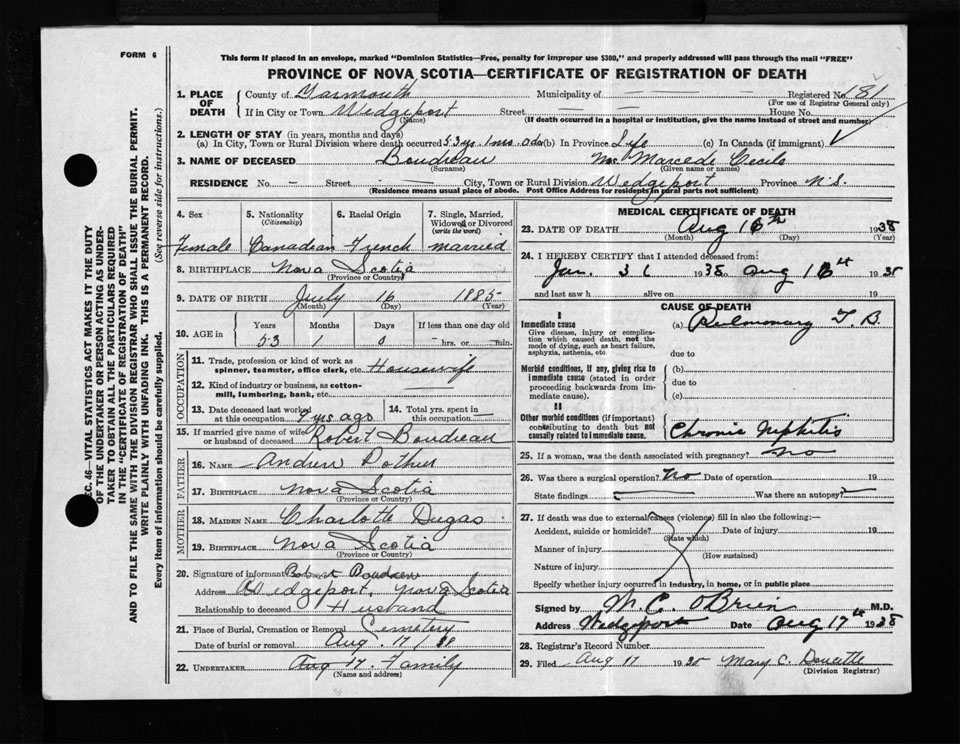 FORM 6
This form if placed in an envelope, marked "Dominion Statistics—Free, penalty for improper use $300," and properly addressed will pass through the mail "FREE"
PROVINCE OF NOVA SCOTIA—CERTIFICATE OF REGISTRATION OF DEATH
1. PLACE OF DEATH County of Yarmouth Municipality of — — — Registered No. 181
(For use of Registrar General only)
If in City or Town Wedgeport Street — — House No.
(Name) (If death occurred in a hospital or institution, give the name instead of street and number)
2. LENGTH OF STAY (in years, months and days)
(a) In City, Town or Rural Division where death occurred 53 yr. 1 mo. 0 da (b) In Province Life (c) In Canada (if immigrant)
3. NAME OF DECEASED Boudreau Mrs Marcede Cecile
(Surname) (Given name or names)
RESIDENCE No. — Street — City, Town or Rural Division Wedgeport Province N.S.
(Residence means usual place of abode. Post Office Address for residents in rural parts not sufficient)
4. Sex 5. Nationality (Citizenship) 6. Racial Origin 7. Single, Married, Widowed or Divorced (write the word)
Female Canadian French married
8. BIRTHPLACE Nova Scotia
(Province or Country)
9. DATE OF BIRTH July 16 1885
(Month) (Day) (Year)
10. AGE in Years Months Days If less than one day old
53 1 0 — hrs. or — min.
OCCUPATION
11. Trade, profession or kind of work as spinner, teamster, office clerk, etc. Housewife
12. Kind of industry or business, as cotton-mill, lumbering, bank, etc.
13. Date deceased last worked at this occupation 4 yrs ago 14. Total yrs. spent in this occupation —
15. If married give name of wife or husband of deceased Robert Boudreau
FATHER
16. NAME Andrew Pothier
17. BIRTHPLACE Nova Scotia
(Province or Country)
MOTHER
18. MAIDEN NAME Charlotte Dugas
19. BIRTHPLACE Nova Scotia
(Province or Country)
20. Signature of informant Robert Boudreau
Address Wedgeport, Nova Scotia
Relationship to deceased Husband
21. Place of Burial, Cremation or Removal Cemetery
Date of burial or removal Aug. 17/38
22. UNDERTAKER Aug 17. Family
(Name and address)
MEDICAL CERTIFICATE OF DEATH
23. DATE OF DEATH Aug 16th 1938
(Month) (Day) (Year)
24. I HEREBY CERTIFY that I attended deceased from:
Jan. 31 1938 Aug 16th 1938
and last saw h alive on 19
CAUSE OF DEATH
I
Immediate cause (a) Pulmonary T.B.
Give disease, injury or complication which caused death, not the mode of dying, such as heart failure, asphyxia, asthenia, etc.
due to
Morbid conditions, if any, giving rise to immediate cause (stated in order proceeding backwards from immediate cause).
(b)
due to
(c)
II
Other morbid conditions (if important) contributing to death but not causally related to immediate cause.
Chronic Nephritis
25. If a woman, was the death associated with pregnancy? no
26. Was there a surgical operation? No Date of operation 19
State findings Was there an autopsy?
27. If death was due to external causes (violence) fill in also the following:—
Accident, suicide or homicide? Date of injury 19
(State which)
Manner of injury
(How sustained)
Nature of injury
Specify whether injury occurred in industry, in home, or in public place
Signed by M. C. O'Brien M.D.
Address Wedgeport Date Aug 17th 1938
28. Registrar's Record Number
29. Filed Aug 17 1938 Mary C. Doucette
(Division Registrar)
SEC. 46—VITAL STATISTICS ACT MAKES IT THE DUTY OF THE UNDERTAKER OR PERSON ACTING AS UNDERTAKER TO OBTAIN ALL THE PARTICULARS REQUIRED IN THE "CERTIFICATE OF REGISTRATION OF DEATH"
AND TO FILE THE SAME WITH THE DIVISION REGISTRAR WHO SHALL ISSUE THE BURIAL PERMIT.
WRITE PLAINLY WITH UNFADING INK. THIS IS A PERMANENT RECORD.
Every item of information should be carefully supplied. (See reverse side for instructions.)